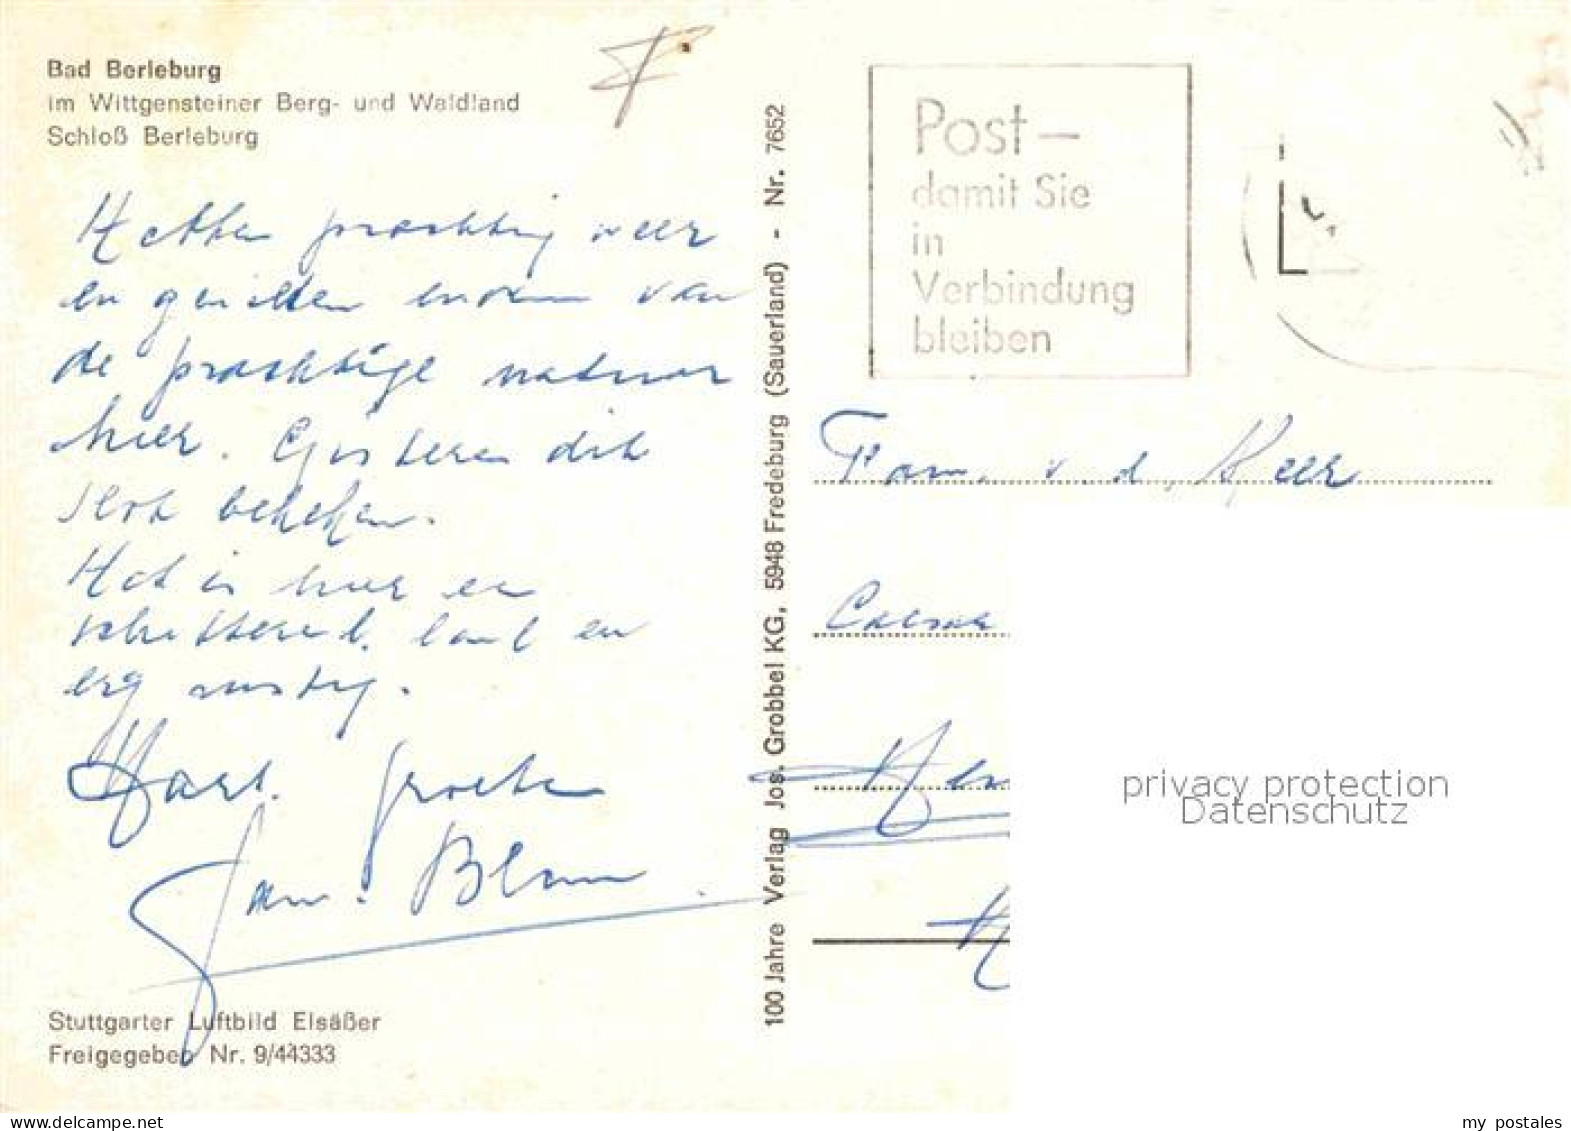 Bad Berleburg
im Wittgensteiner Berg- und Waldland
Schloß Berleburg
Hebben prachtig weer
en genieten enorm van
de prachtige natuur
hier. Gisteren dit
slot bekeken.
Het is hier een
schitterend land en
erg rustig.
Hart. groeten
Fam. Blom
Stuttgarter Luftbild Elsäßer
Freigegeben Nr. 9/44333
100 Jahre Verlag Jos. Grobbel KG, 5948 Fredeburg (Sauerland) - Nr. 7652
Post-
damit Sie
in
Verbindung
bleiben
Fam. v. d. Keer
privacy protection
Datenschutz
www.delcampe.net
my_postales